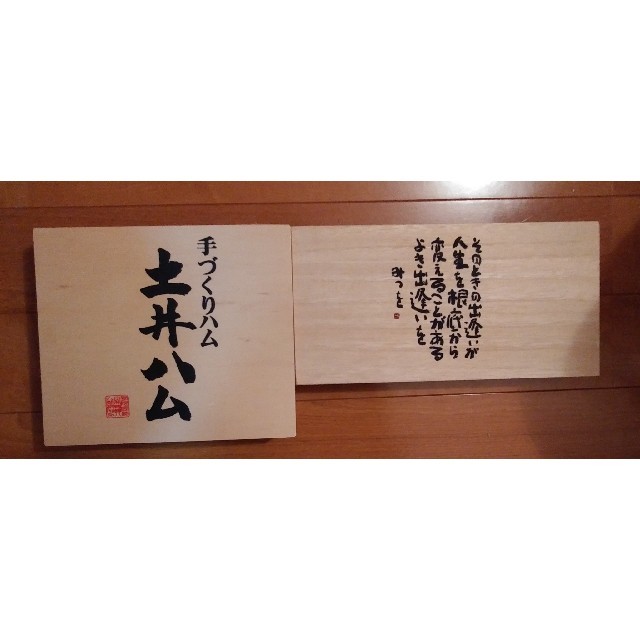 手づくりハム
土井ハム
そのときの出逢いが
人生を根底から
変えることがある
よき出逢いを
みつを